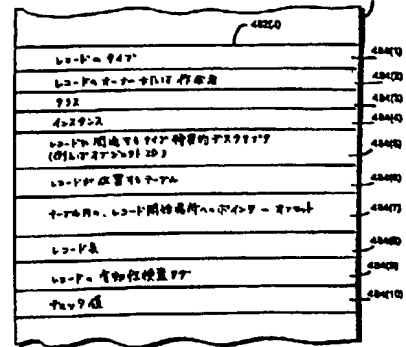 482(N)
レコードのタイプ
484(1)
レコードのオーナーまたは作成者
484(2)
クラス
484(3)
インスタンス
484(4)
レコードに関連するタイプ特異的デスクリプタ
(例えばオブジェクトID)
484(5)
レコードが位置するテーブル
484(6)
テーブル内の、レコード開始場所へのポインター オフセット
484(7)
レコード長
484(8)
レコードの有効性検査タグ
484(9)
チェック値
484(10)